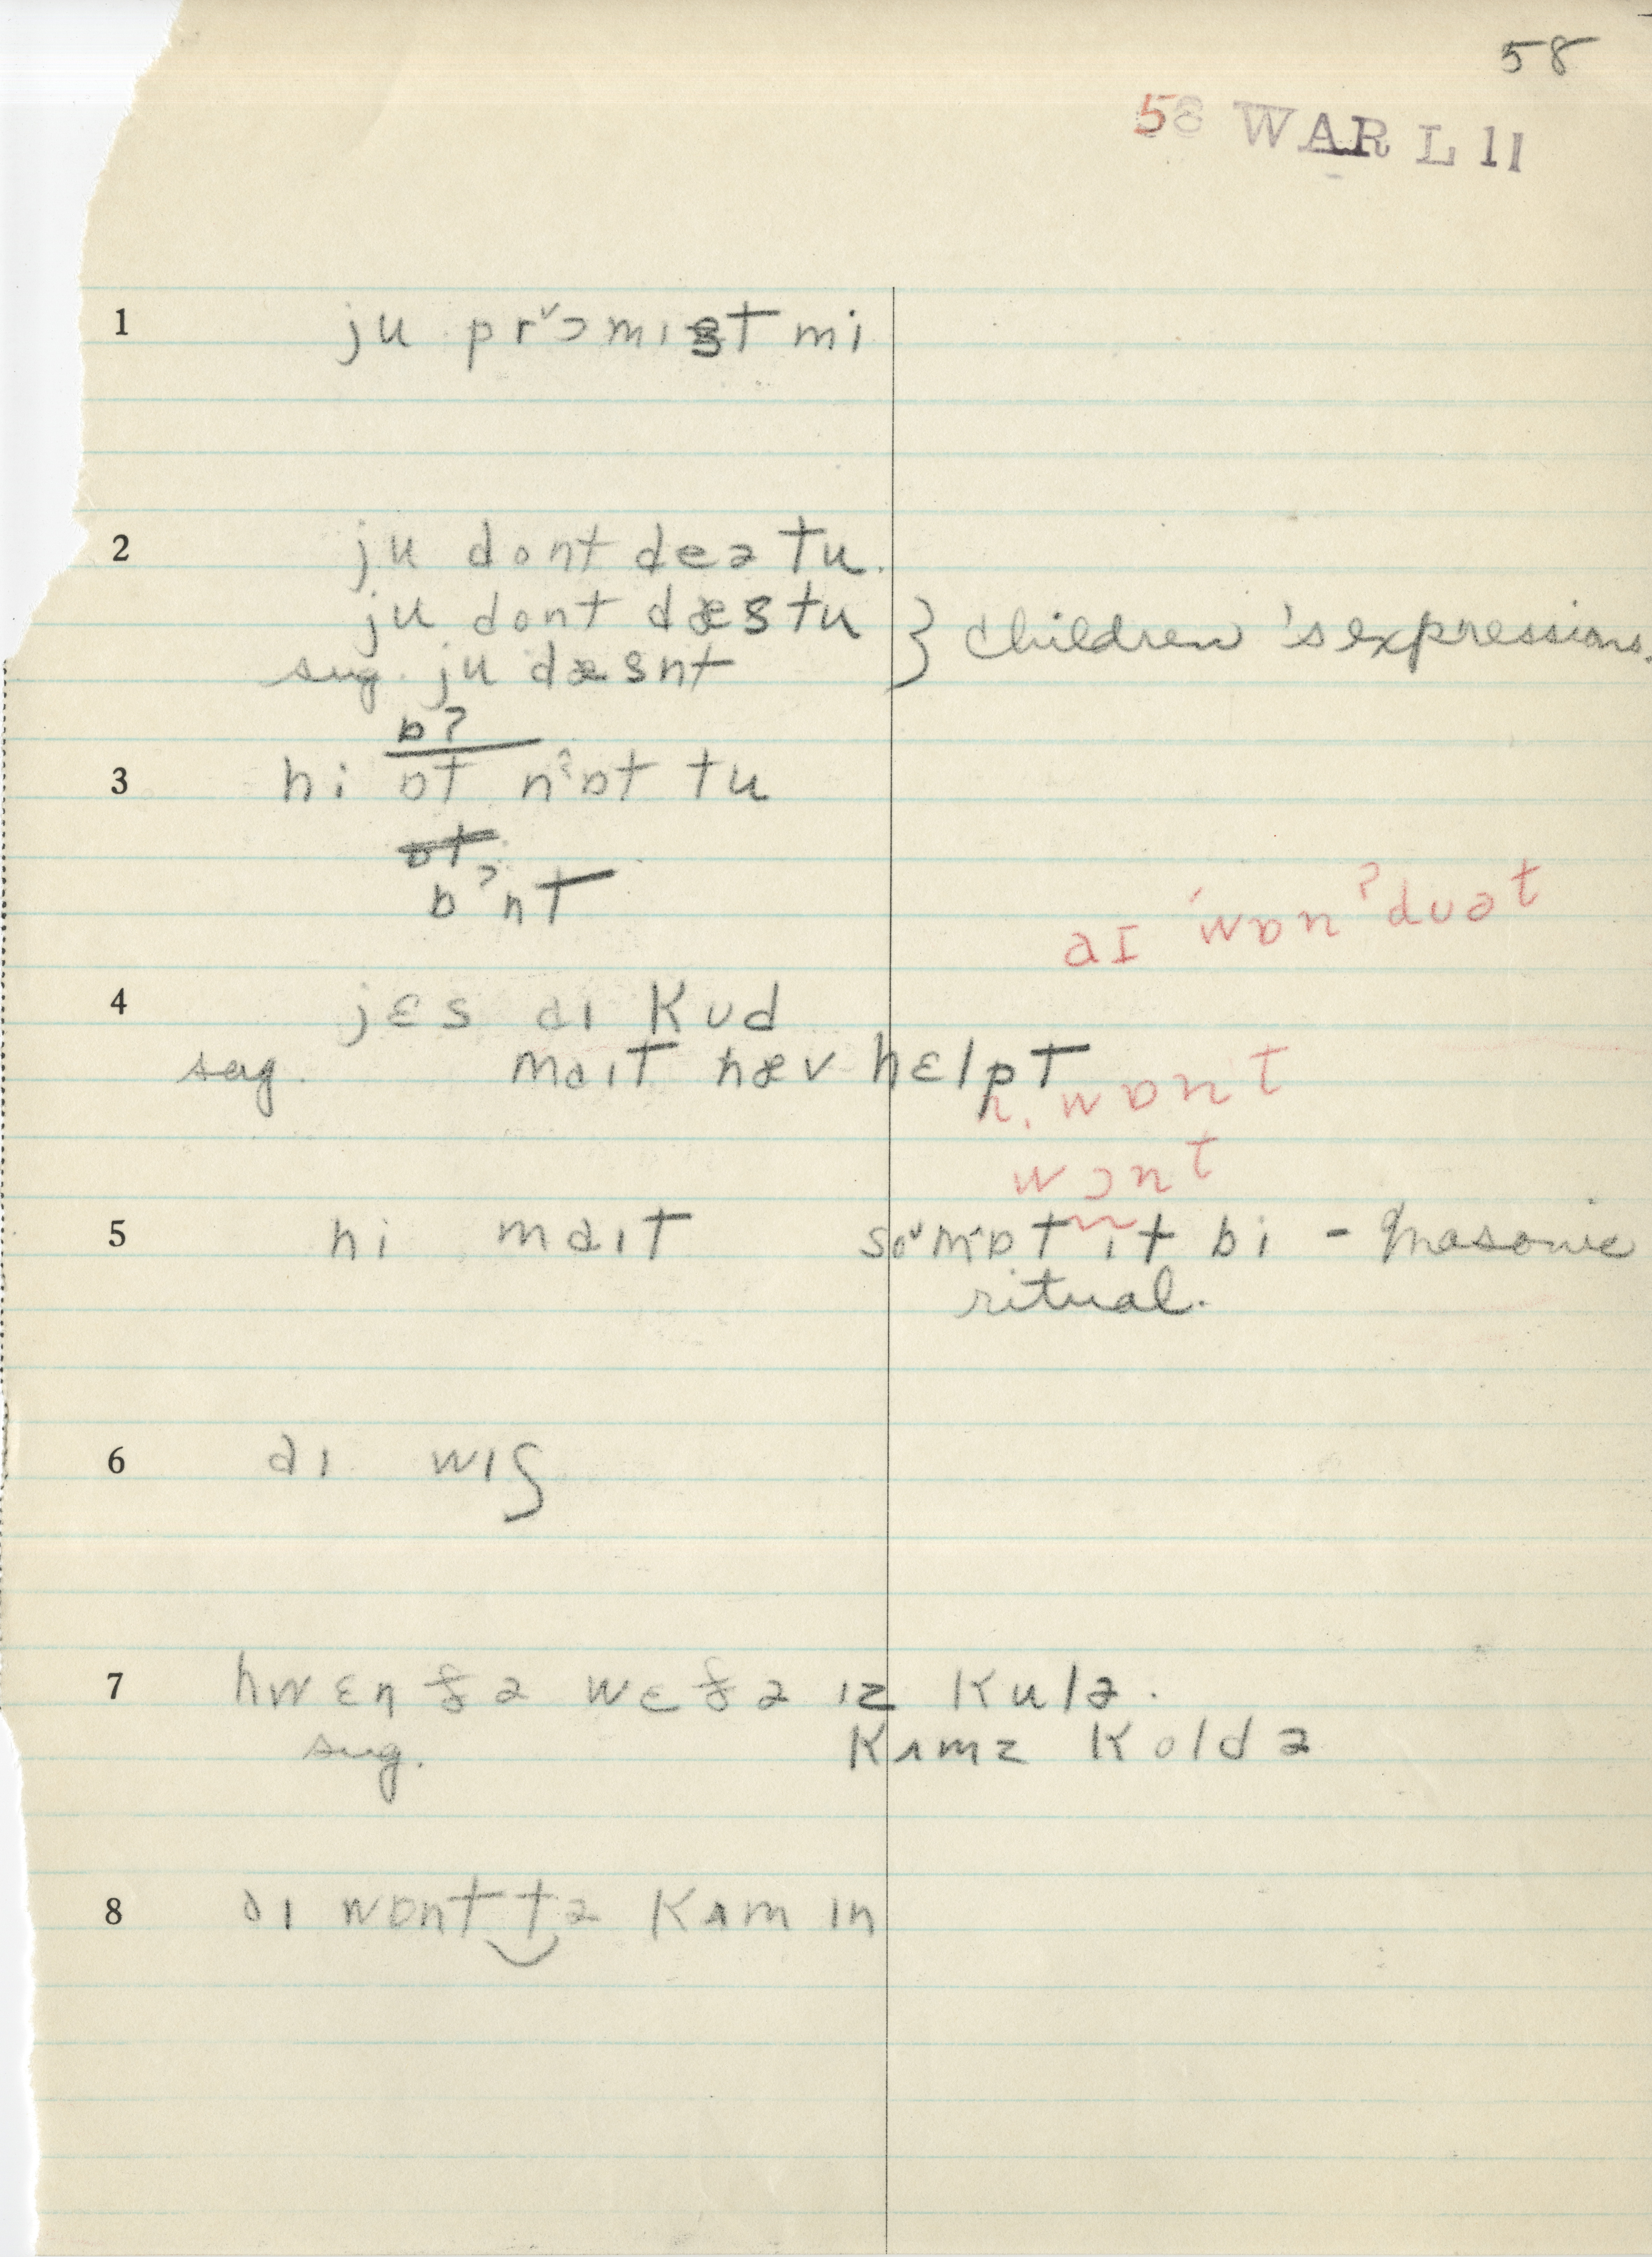 58
58 WAR L 11
1 ju prˇɔmɪst mi
2 ju dont deə tu.
ju dont dæs tu } children's expressions.
sug. ju dæsnt
ɒ?
3 hi ɒt nˀɒt tu
ɒt
ɒˀnt
aɪ 'wɒnˀduət
4 jɛs aɪ kud
sug. maɪt hæv hɛlpt
wɒnt
wɔnt
5 hi maɪt soˇmˈɒt ɪt bi - Masonic
ritual.
6 aɪ wɪʃ
7 hwɛn ðə wɛðə ɪz kulə.
sug. kʌmz koldə
8 aɪ wɒnt tə kʌm ɪn